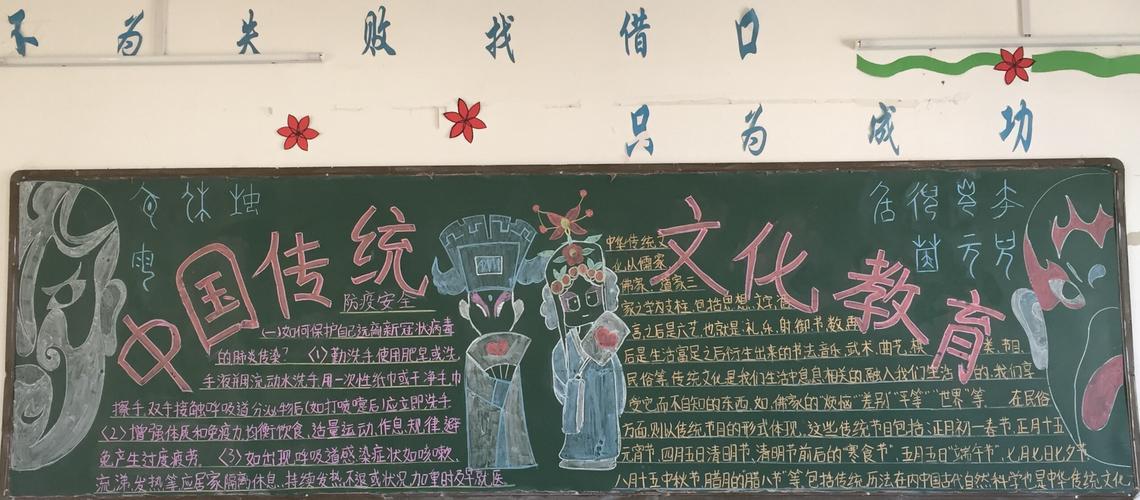 不为失败找借口
只为成功
中国传统文化教育
防疫安全
(一)如何保护自己远离新冠状病毒
的肺炎传染? (1)勤洗手.使用肥皂或洗
手液并用流动水洗手.用一次性纸巾或干净毛巾
擦手.双手接触呼吸道分必物后(如打喷嚏后)应立即洗手
(2)增强体质和免疫力.均衡饮食、适量运动、作息规律.避
免产生过度疲劳. (3)如出现呼吸道感染症状如咳嗽、
流涕、发热等应居家隔离休息.持续发热不退或状况加重时及早就医
中华传统文
化从儒家
佛家、道家三
家之学为支柱.包括思想、文字、语
言.之后是六艺.也就是:礼、乐、射、御、书、数.再
后是生活富足之后衍生出来的书法、音乐、武术、曲艺、棋 类、节日、
民俗等.传统文化是我们生活中息息相关的.融入我们生活 的,我们享
受它而不自知的东西.如:佛家的"烦恼""差别""平等""世界"等. 在民俗
方面则以传统节日的形式体现.这些传统节日包括:正月初一春节.正月十五
元宵节.四月五日清明节.清明节前后的"寒食节".五月五日"端午节".七月七日七夕节.
八月十五中秋节.腊月的"腊八节"等.包括传统历法在内中国古代自然科学也是中华传统文化